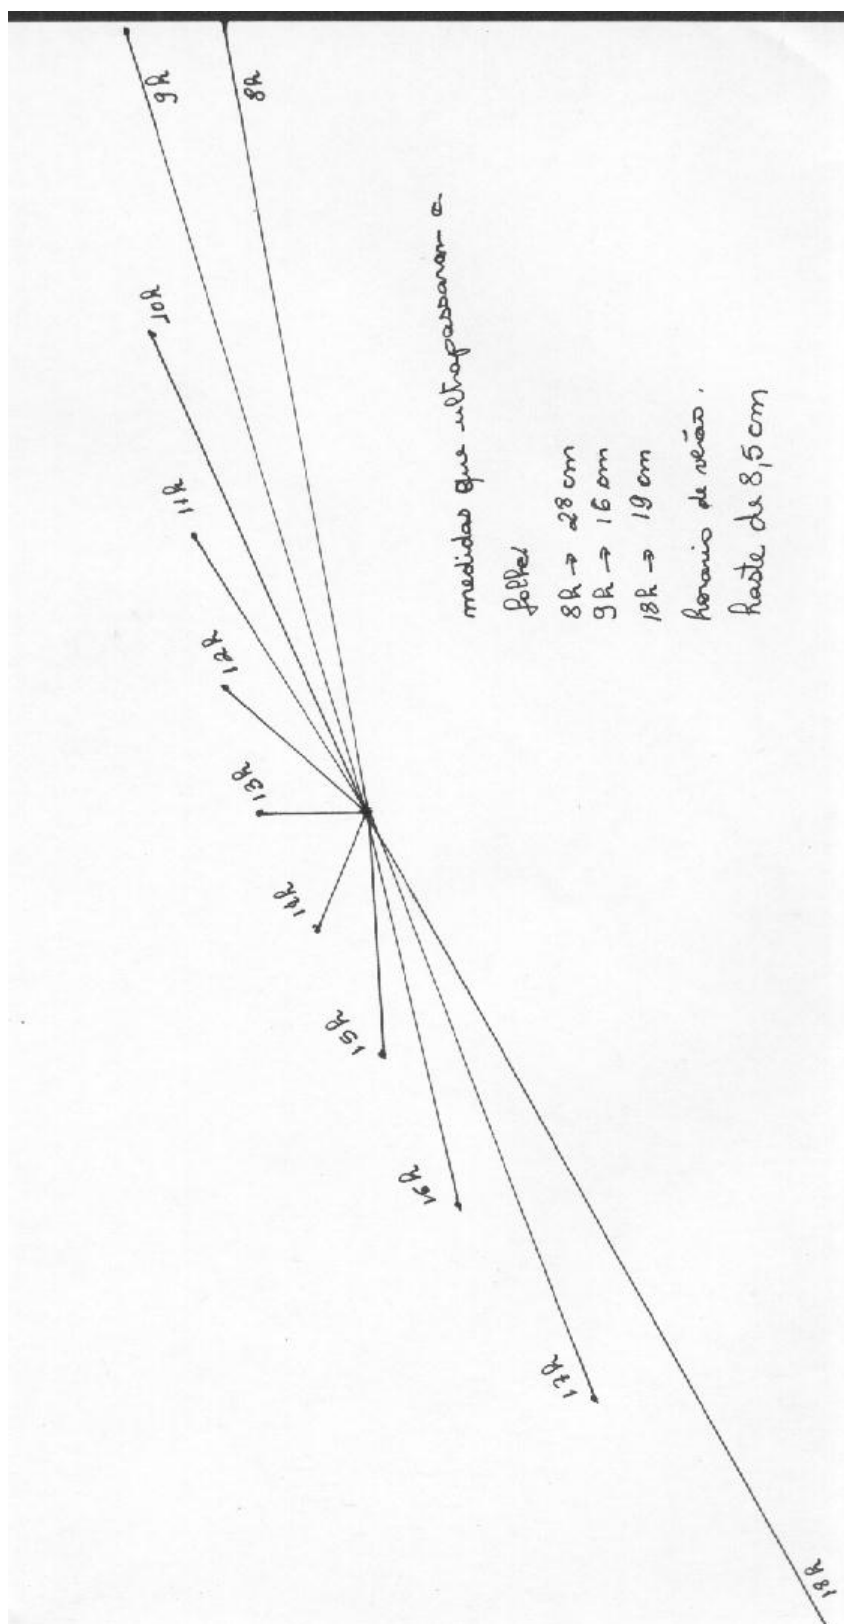 8h
9h
10h
11h
12h
13h
14h
15h
16h
17h
18h
medidas que ultrapassaram a
folha
8h → 28 cm
9h → 16 cm
18h → 19 cm
horario de verão.
haste de 8,5 cm